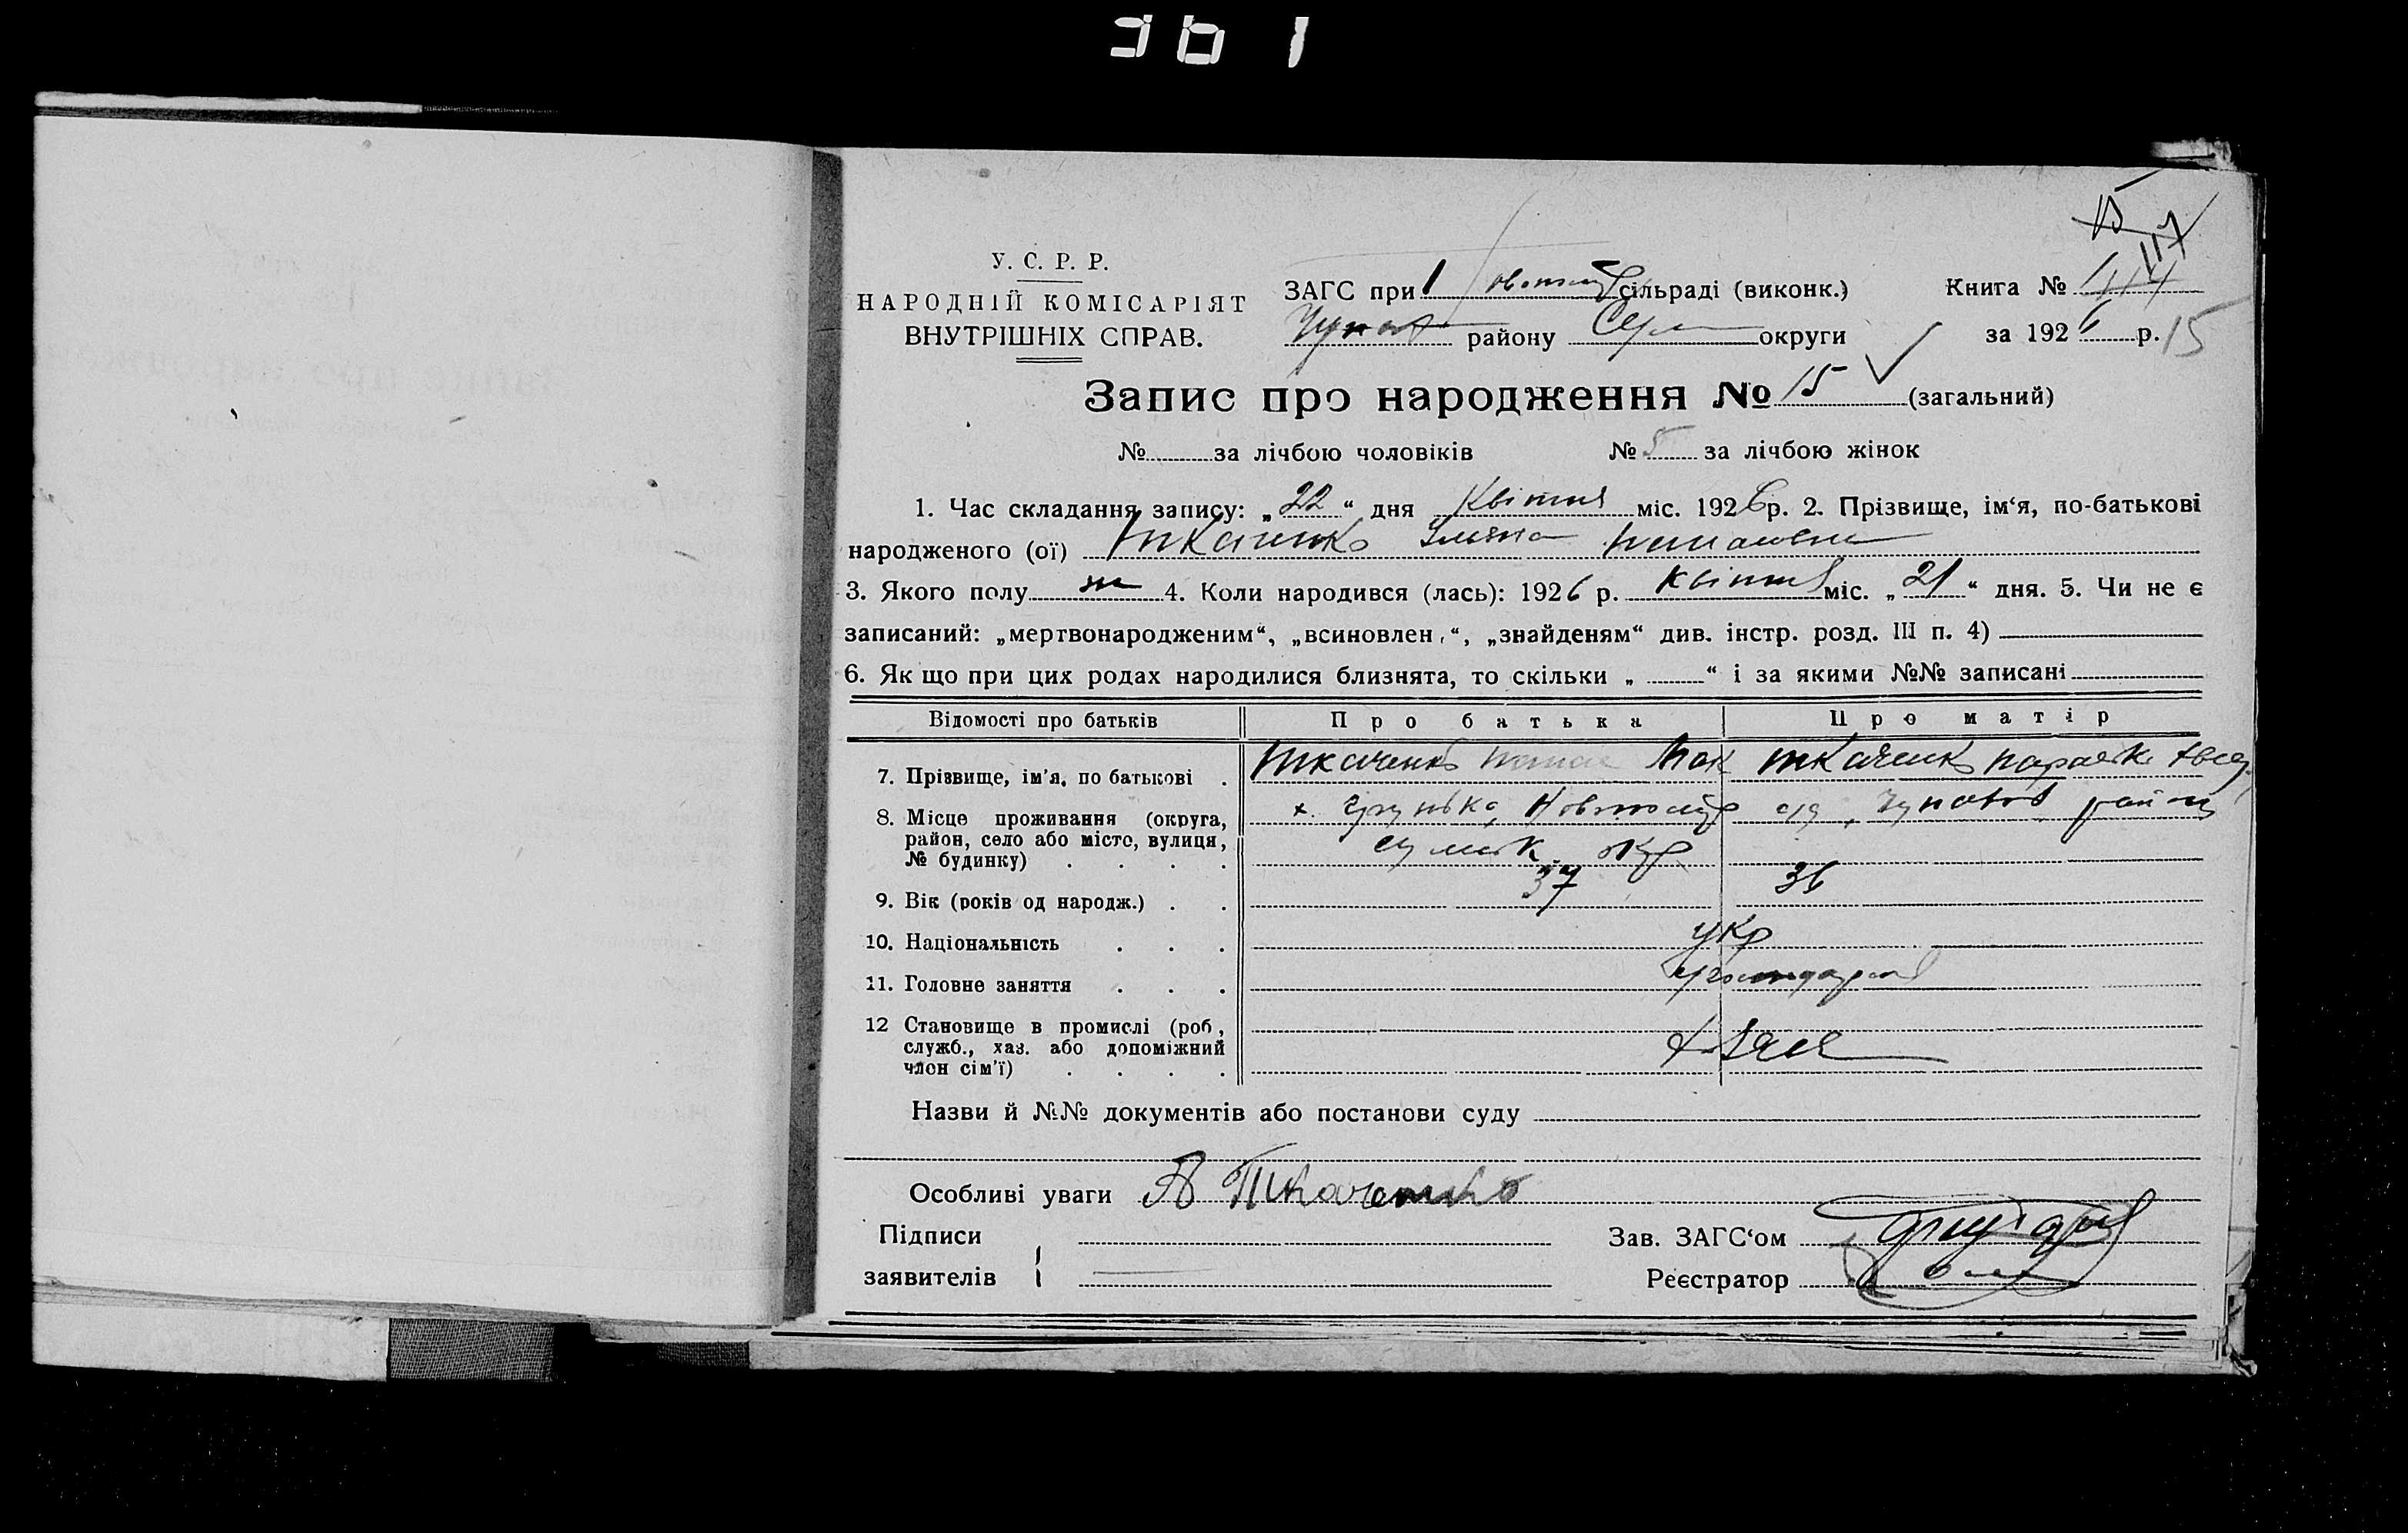 361
15
117
У. С. Р. Р.
НАРОДНІЙ КОМІСАРІЯТ
ВНУТРІШНІХ СПРАВ.
ЗАГС при 1 сільраді (виконк.)
району округи
Книга № 114
за 1926 р. 15
Запис про народження № 15 (загальний)
№ за лічбою чоловіків № 5 за лічбою жінок
1. Час складання запису: „22“ дня Квітня міс. 1926 р. 2. Прізвище, ім‘я, по-батькові
народженого (ої) Ткаченко Уляна Панасовна
3. Якого полу ж 4. Коли народився (лась): 1926 р. Квітня міс. „21“ дня. 5. Чи не є
записаний: „мертвонародженим“, „всиновлен.“, „знайденям“ див. інстр. розд. III п. 4)
6. Як що при цих родах народилися близнята, то скільки „ “ і за якими №№ записані
Відомості про батьків Про батька Про матір
7. Прізвище, ім'я, по батькові . Ткаченко Панас Ткаченко Параск.
8. Місце проживання (округа, район, село або місто, вулиця, № будинку) . . . . х.
район
Сумськ. окр
9. Вік (років од народж.) . . 37 36
10. Національність . . . укр
11. Головне заняття . . .
12 Становище в промислі (роб., служб., хаз. або допоміжний член сім'ї) . . . .
Назви й №№ документів або постанови суду
Особливі уваги Ткаченко
Підписи
заявителів
Зав. ЗАГС‘ом
Реєстратор